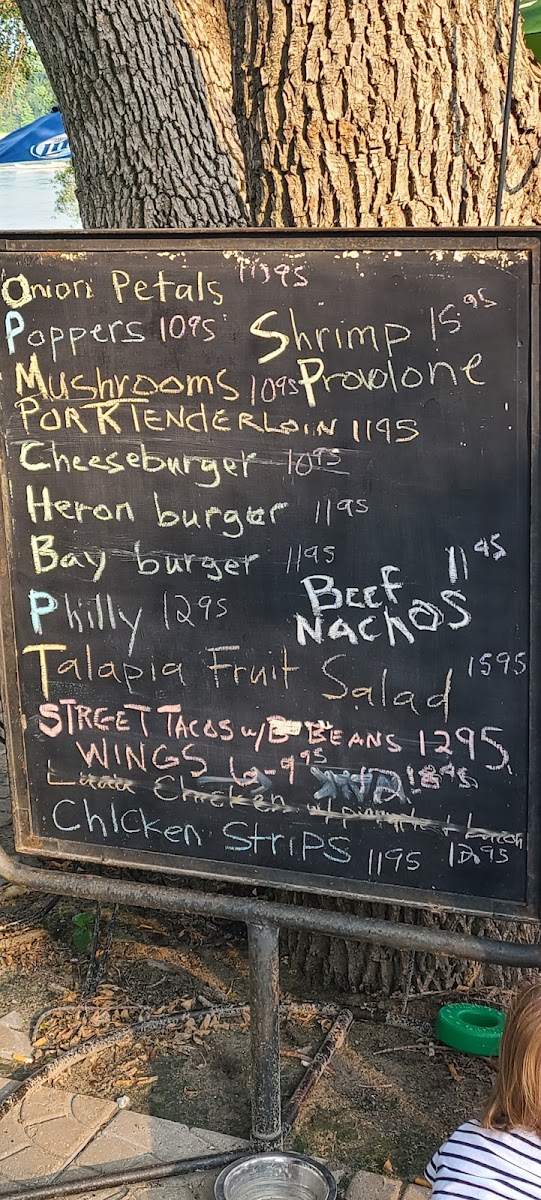 Onion Petals 1395
Poppers 1095 Shrimp 15.95
Mushrooms 1095 Provolone
PORK TENDERLOIN 1195
Cheeseburger 1095
Heron burger 1195
Bay burger 1195
Philly 1295 BEEF NACHOS 1195
Talapia Fruit Salad 1595
STREET TACOS w/ BEANS 1295
WINGS 6-995 12! 1895
Chicken
Chicken Strips 1195 12.95